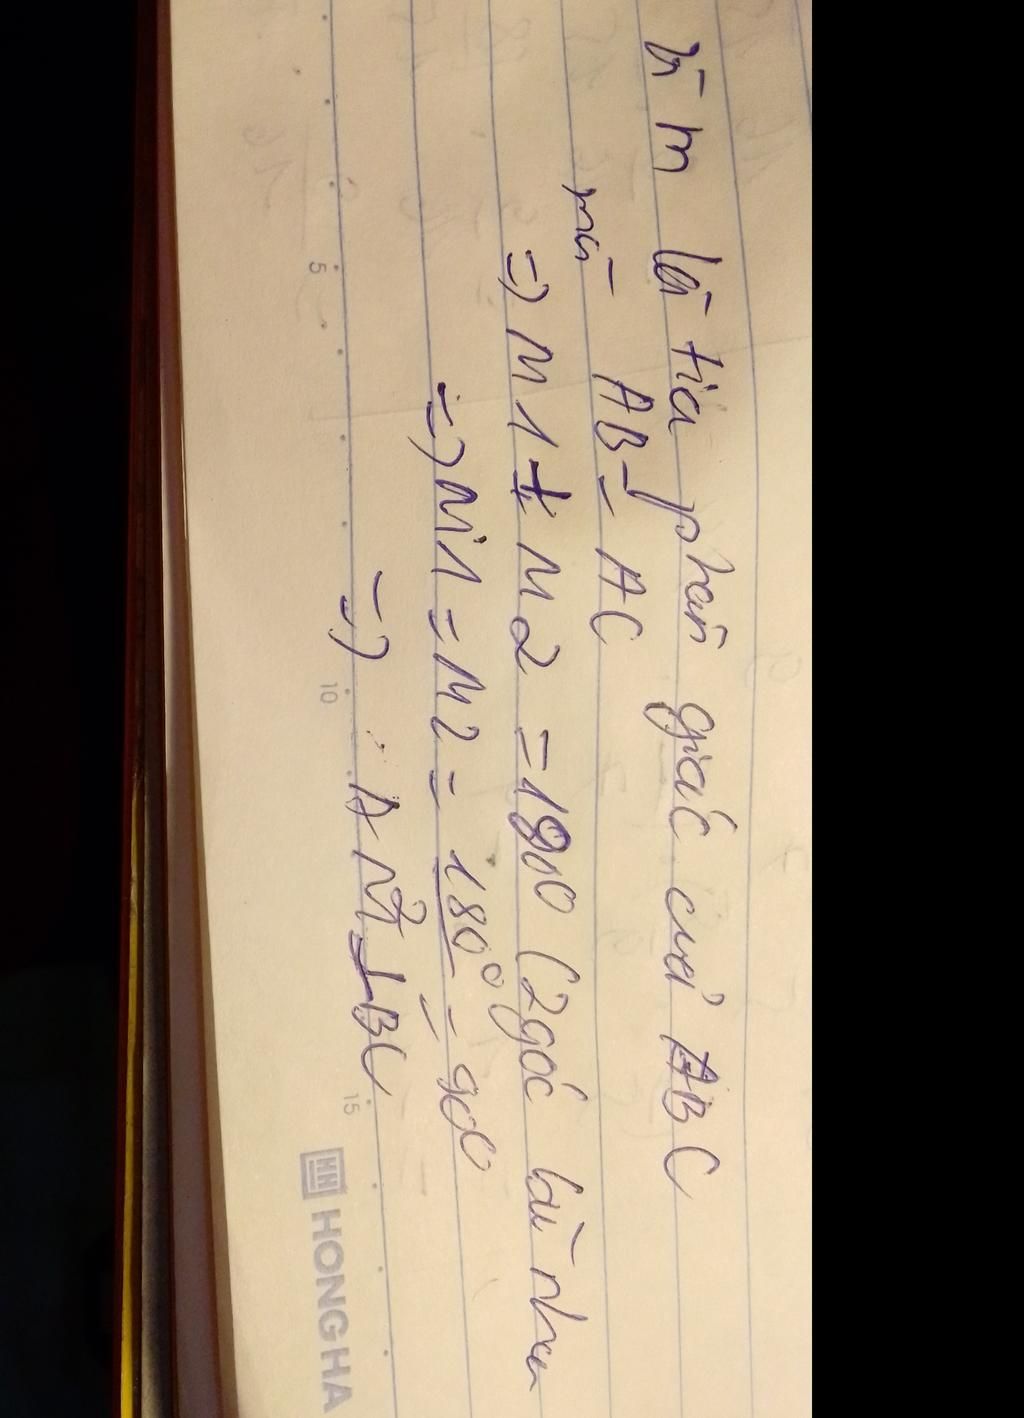 vì m là tia phân giác của ABC
mà AB = AC
=) M1 + M2 = 180 (2góc bù nhau
=) M1 = M2 = 180° = 90
=) AM ⊥ BC
5
10
15
HH HONG HA